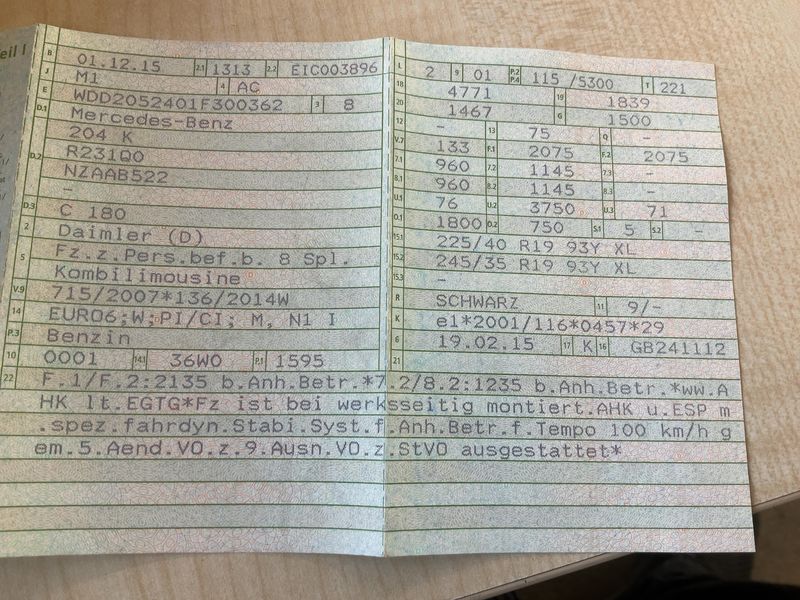 eil I
B 01.12.15 2.1 1313 2.2 EIC003896
J M1 4 AC
E WDD2052401F300362 3 8
D.1 Mercedes-Benz
204 K
D.2 R231Q0
NZAAB522
–
D.3 C 180
2 Daimler (D)
5 Fz.z.Pers.bef.b. 8 Spl.
Kombilimousine
V.9 715/2007*136/2014W
14 EURO6;W;PI/CI; M, N1 I
P.3 Benzin
10 0001 14.1 36W0 P.1 1595
L 2 9 01 P.2 P.4 115 /5300 T 221
18 4771 19 1839
20 1467 G 1500
12 – 13 75 Q –
V.7 133 F.1 2075 F.2 2075
7.1 960 7.2 1145 7.3 –
8.1 960 8.2 1145 8.3 –
U.1 76 U.2 3750 U.3 71
O.1 1800 O.2 750 S.1 5 S.2 –
15.1 225/40 R19 93Y XL
15.2 245/35 R19 93Y XL
15.3 –
R SCHWARZ 11 9/–
K e1*2001/116*0457*29
6 19.02.15 17 K 16 GB241112
21
22 F.1/F.2:2135 b.Anh.Betr.*7.2/8.2:1235 b.Anh.Betr.*ww.A
HK lt.EGTG*Fz ist bei werksseitig montiert.AHK u.ESP m
.spez.fahrdyn.Stabi.Syst.f.Anh.Betr.f.Tempo 100 km/h g
em.5.Aend.VO.z.9.Ausn.VO.z.StVO ausgestattet*